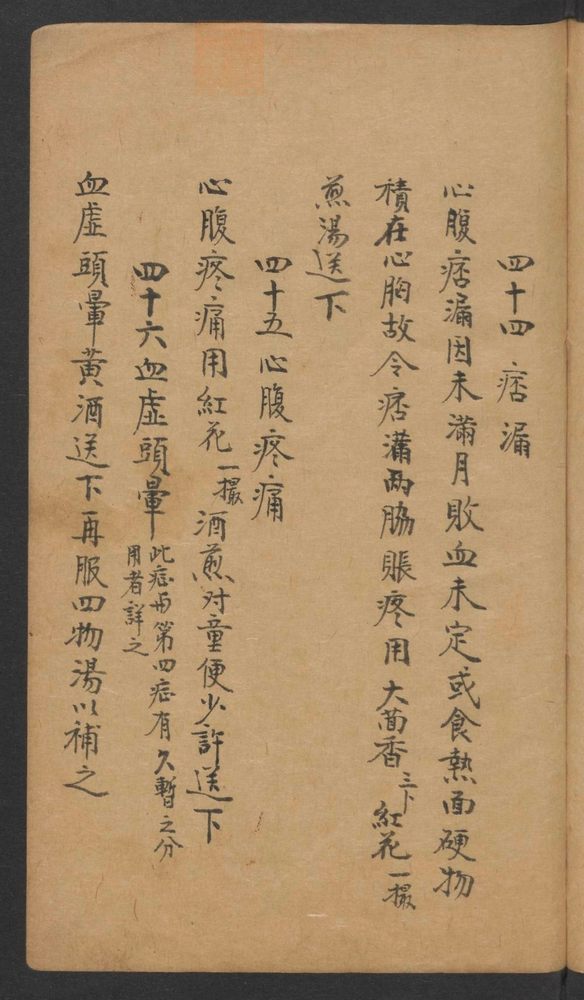 四十四 痞漏
心腹痞漏因未滿月敗血未定或食熱面硬物
積在心胸故令痞滿两脇脹疼用大茴香三卜紅花一撮
煎湯送下
四十五心腹疼痛
心腹疼痛用紅花一撮酒煎对童便少許送下
四十六血虛頭暈此症与第四症有久暫之分用者詳之
血虛頭暈黃酒送下再服四物湯以補之